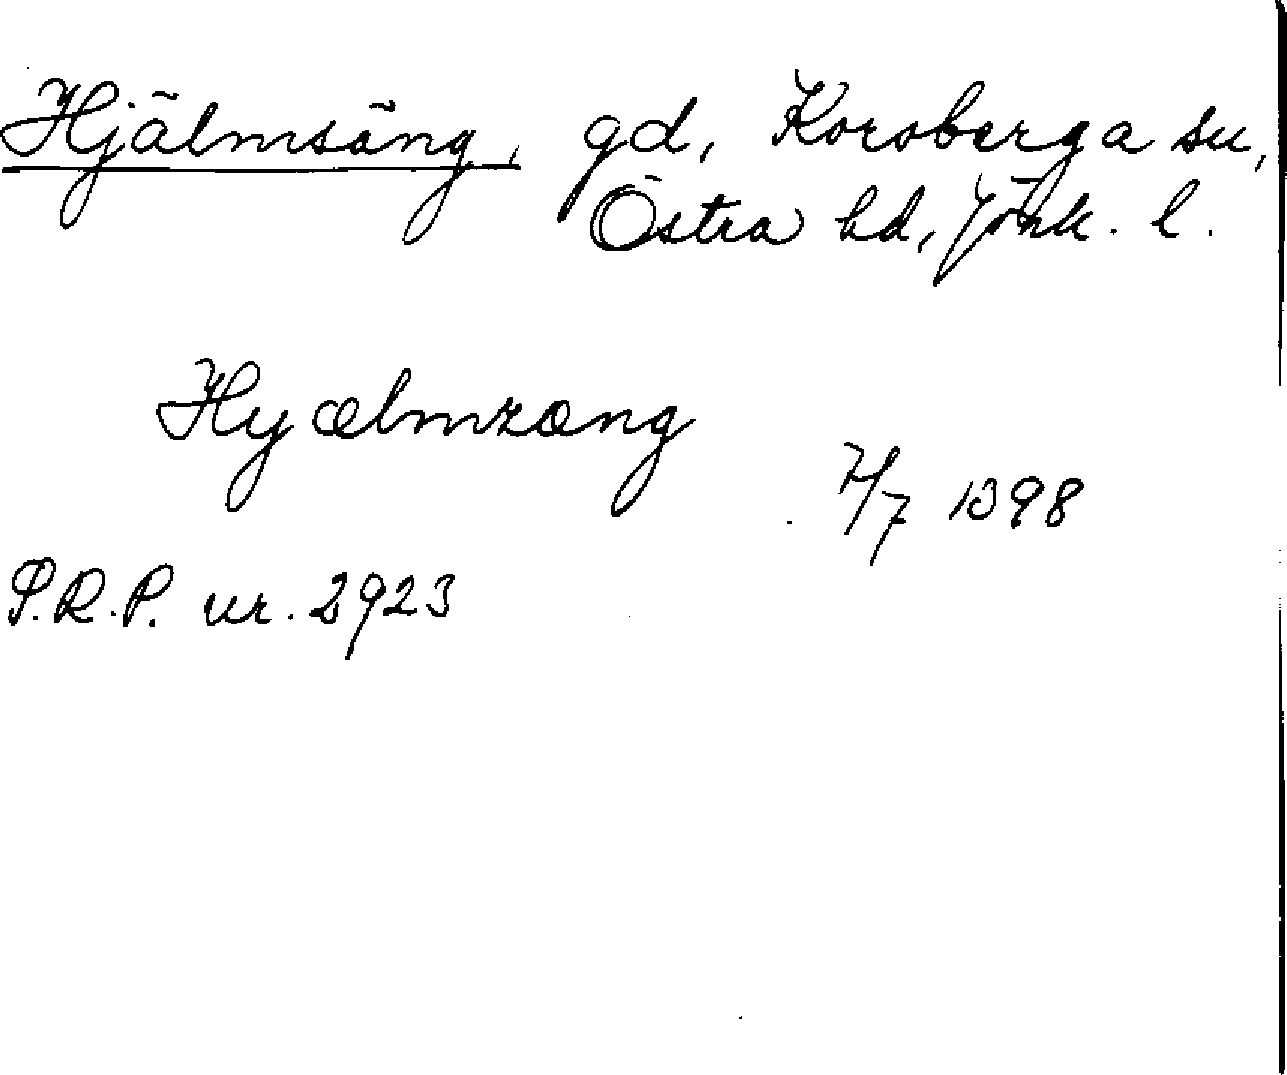 Hjälmsäng, gd, Korsberga sn,
Östra hd, Jönk. l.
Hyælmzæng
7/7 1398
P.R.P. nr. 2923